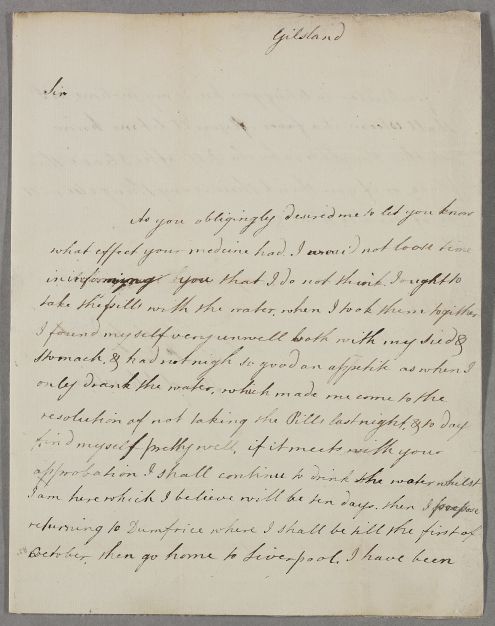 Gilsland
Sir
As you obligingly desired me to let you know
what effect your medcine had. I would not loose time
in informing you that I do not think I ought to
take the pills with the water, when I took them together
I found myself very unwell both with my sied &
stomach, & had not nigh so good an appetite as when I
only drank the water, which made me come to the
resolution of not taking the Pills last night, & to day
find myself pretty well, if it meets with your
approbation I shall continue to drink the water whilst
I am here which I believe will be ten days, then I propose
returning to Dumfrice where I shall be till the first of
October, then go home to Liverpool. I have been